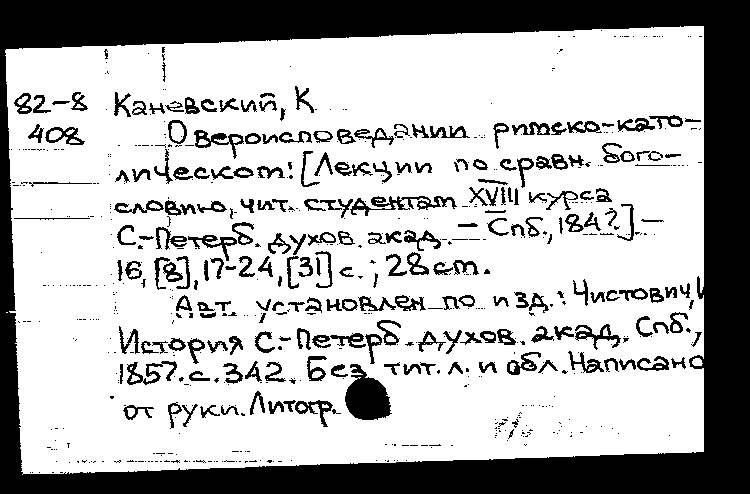 82-8 Каневский, К
408 О вероисповедании римско-като-
лическом: [Лекции по сравн. бого-
словию, чит. студентам XVIII курса
С.-Петерб. духов. акад. — Спб., 184?] —
16, [8], 17-24, [31] с.; 28 см.
Авт. установлен по изд.: Чистович, И
История С.-Петерб. духов. акад. Спб.,
1857. с. 342. Без тит. л. и обл. Написано
от руки. Литогр.